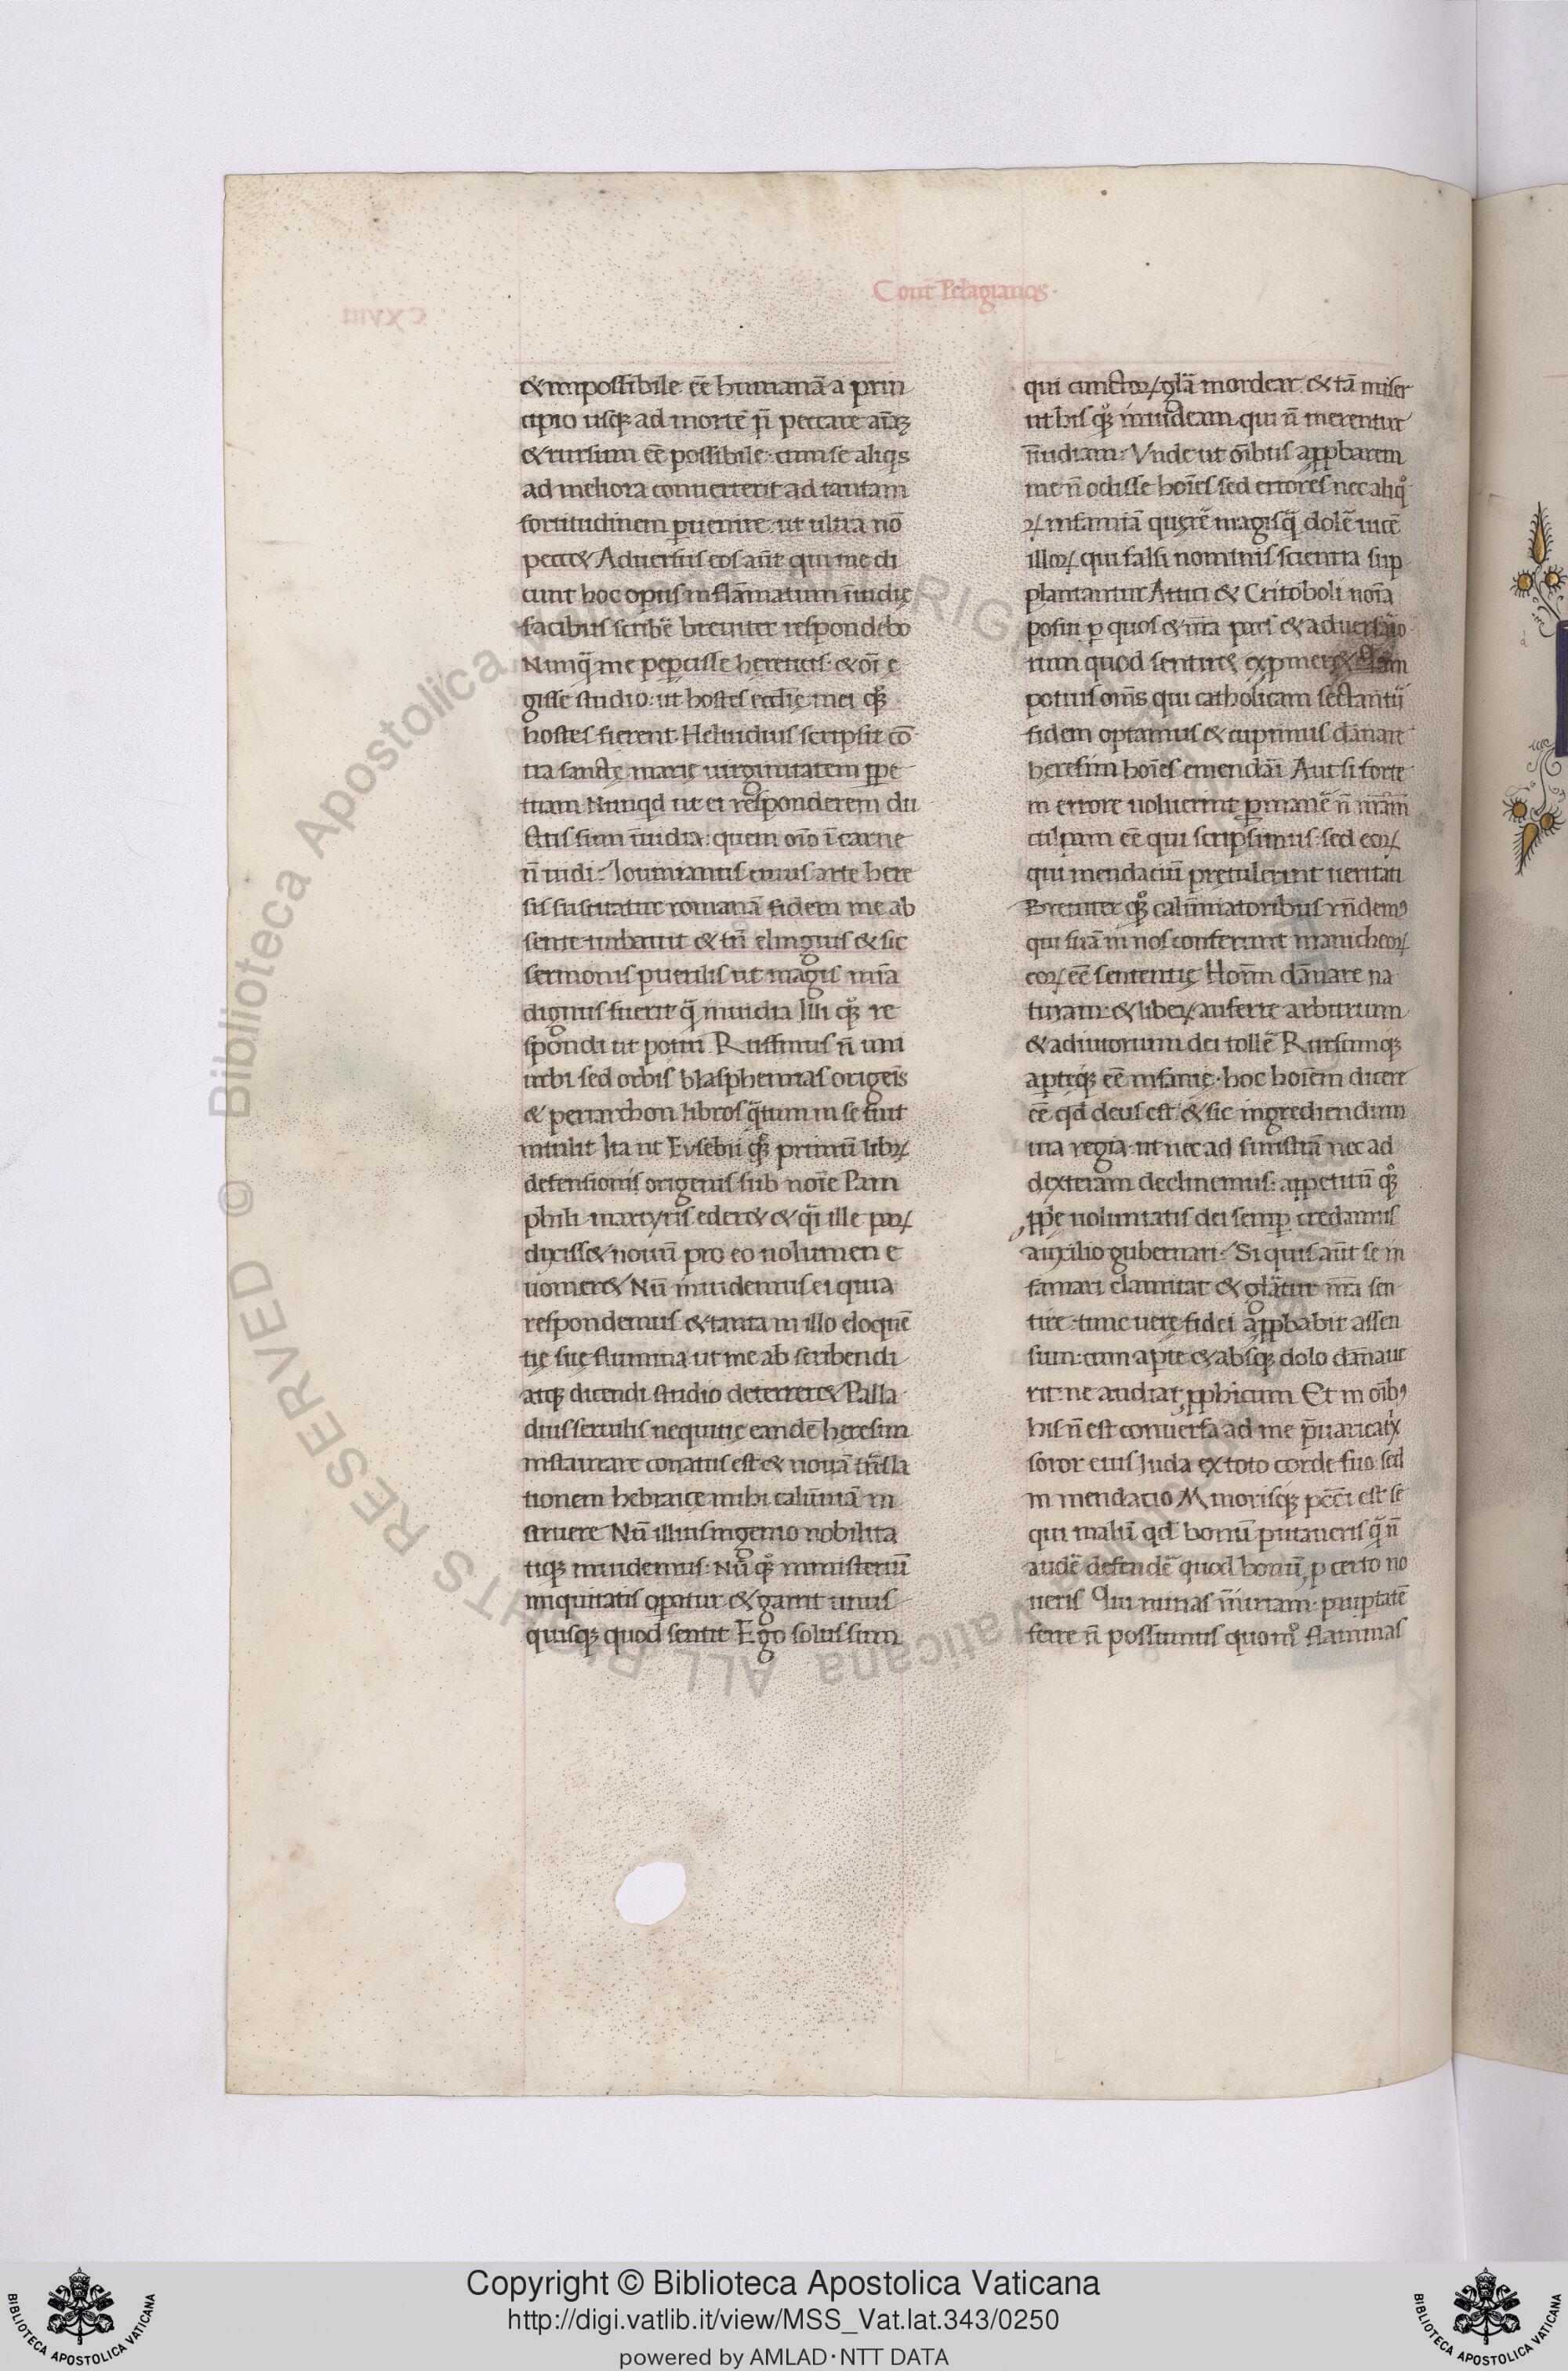 Cont̄ Pelagianos·
CXVIII
& impossibile eē humanā a prin
cipio usq; ad mortē n̄ peccare
& rursum eē possibile cum se aliqs
ad meliora conuerterit ad tantam
fortitudinem ꝑuenire ut ultra nō
pecc& Aduersus eos aūt qui me di
cunt hoc opus inflāmatum inuidię
facibus scribē breuiter respondebo
Nunq̄ me peꝑcisse hereticis & oī e
gisse studio: ut hostes ecclię mei qꝫ
hostes fierent Heluidius scripsit cō
tra sanctę marię uirginitatem ꝑpe
tuam Nunqd ut ei responderem du
ctus sum īuidia: quem oīo ī carne
n̄ uidi. Iouinianus cuius arte here
sis suscitatur romanā fidem me ab
sente turbauit & tn̄ elinguis & sic
sermonis puerilis ut magis mīa
dignus fuerit q̄ inuidia Illi qꝫ re
spondi ut potui Ruffinus n̄ uni
urbi sed orbis blasphemias origeīs
& periarchon libros q̄tum in se fuit
intulit Ita ut Eusebii qꝫ primū libꝝ
defensionis origenis sub noīe Pam
phili martyris eder& & q̄i ille paꝝ
dixiss& nouū pro eo uolumen e
uomer& Nū inuidemus ei quia
respondemus & tanta in illo eloquē
tię suę flumina ut me ab scribendi
atq; dicendi studio deterrer& Palla
dius seruilis nequitię eandē heresim
instaurare conatus est & nouā trāsla
tionem hebraicę mihi calūniā in
struere Nū illius ingenio nobilita
tiq; inuidemus. Nū qꝫ ministeriū
iniquitatis oꝑatur & garrit unus
quisq; quod sentit Ego solus sum
qui cunctoꝝ glā mordear & tā miser
ut his qꝫ inuideam qui n̄ merentur
īuidiam. Vnde ut oībus apꝓbarem
me n̄ odisse hoīes sed errores nec aliqͦ
ꝝ infamiā quęrē magisq̄ dolē uicē
illoꝝ qui falsi nominis scientia sup
plantantur Attici & Critoboli noīa
posui ꝑ quos & nr̄a pars &
quod sentir& exprimer&
potius omīs qui catholicam sectantur
fidem optamus & cupimus dānari
heresim hoīes emendari Aut si forte
in errore uoluerint ꝑmanē n̄ nr̄am
culpam eē qui scripsimus. sed eoꝝ
qui mendaciū pretulerint ueritati
Breuiter qꝫ calūniatoribus rn̄demꝰ
qui suā in nos conferunt manicheoꝝ
eoꝝ eē sententię Hoīum dānare na
turam & liberꝝ auferre arbitrium
& adiutorium dei tollē Rursumqꝫ
apteqꝫ eē insanię hoc hoīem dicere
eē qd deus est & sic ingrediendum
uia regia ut nec ad sinistrā nec ad
dexteram declinemus: appetitū qꝫ
ꝓprie uoluntatis dei semꝑ credamus
auxilio gubernari. Si quis aūt se in
famari clamitat & glātur nr̄a sen
tire tunc uerę fidei apꝓbabit assen
sum: cum apte & absq; dolo dānaue
rit: ne audiat ꝓphicum Et in oībꝰ
his n̄ est conuersa ad me p̄uaricatͥx
soror eius Iuda ex toto corde suo sed
in mendacio Minorisq; pcc̄i est se
qui malū qd bonū putaueris q̄ n̄
audē defendē quod bonū, ꝑ certo no
ueris Qui minas īiuriam puiptatē
ferre n̄ possumus quomͦ flammas
Copyright © Biblioteca Apostolica Vaticana
http://digi.vatlib.it/view/MSS_Vat.lat.343/0250
powered by AMLAD·NTT DATA
© Biblioteca Apostolica Vaticana ALL RIGHTS RESERVED
BIBLIOTECA APOSTOLICA VATICANA
BIBLIOTECA APOSTOLICA VATICANA